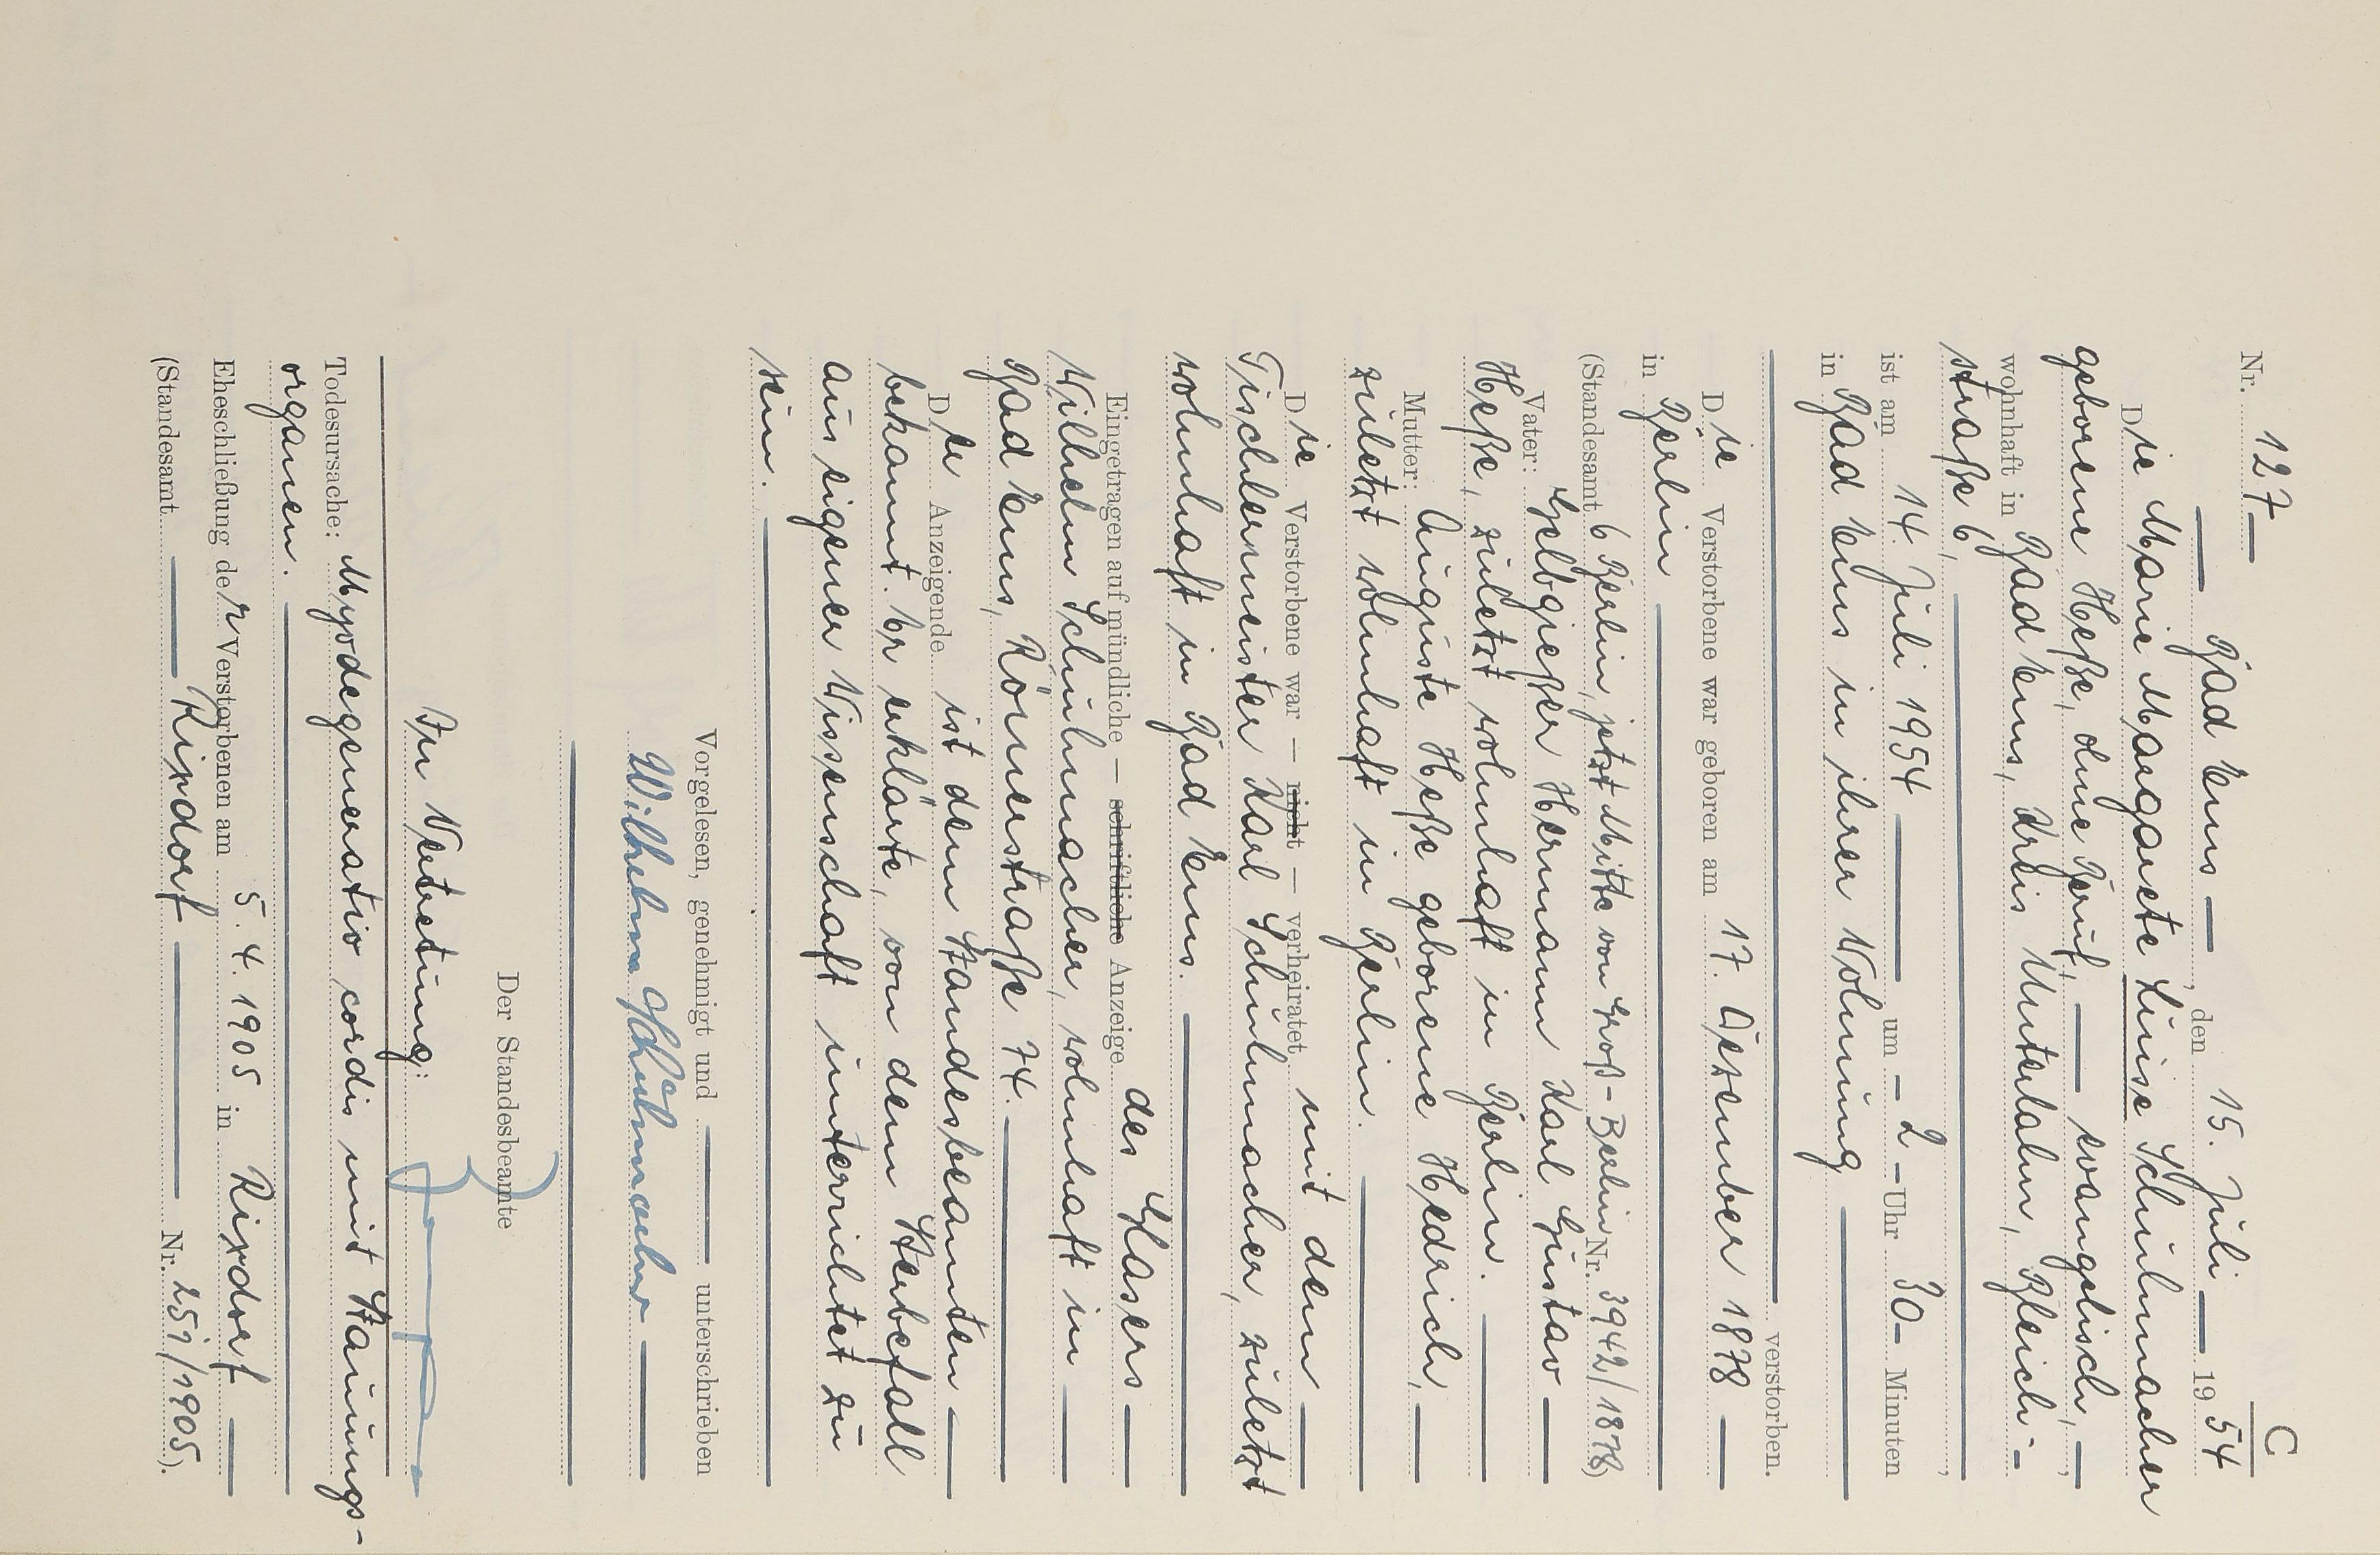 C
Nr. 127
Bad Ems, den 15. Juli 1954
Die Marie Margarete Luise Schuhmacher
geborene Heße, ohne Beruf, evangelisch,
wohnhaft in Bad Ems, Kreis Unterlahn, Bleich-
straße 6,
ist am 14. Juli 1954 um - 2 - Uhr 30 - Minuten
in Bad Ems in ihrer Wohnung
verstorben.
Die Verstorbene war geboren am 17. Dezember 1878
in Berlin
(Standesamt 6 Berlin, jetzt Mitte von Groß-Berlin Nr. 3942/1878)
Vater: Gelbgießer Hermann Karl Gustav
Heße, zuletzt wohnhaft in Berlin.
Mutter: Auguste Heße geborene Hedrich,
zuletzt wohnhaft in Berlin.
Die Verstorbene war — nicht — verheiratet mit dem
Tischlermeister Karl Schuhmacher, zuletzt
wohnhaft in Bad Ems.
Eingetragen auf mündliche — schriftliche Anzeige des Glasers
Wilhelm Schuhmacher, wohnhaft in
Bad Ems, Römerstraße 74.
Der Anzeigende ist dem Standesbeamten
bekannt. Er erklärte, von dem Sterbefall
aus eigener Wissenschaft unterrichtet zu
sein.
Vorgelesen, genehmigt und unterschrieben
Wilhelm Schuhmacher
Der Standesbeamte
In Vertretung:
Todesursache: Myodegeneratio cordis mit Stauungs-
organen.
Eheschließung der Verstorbenen am 5. 4. 1905 in Rixdorf
(Standesamt Rixdorf Nr. 251/1905).